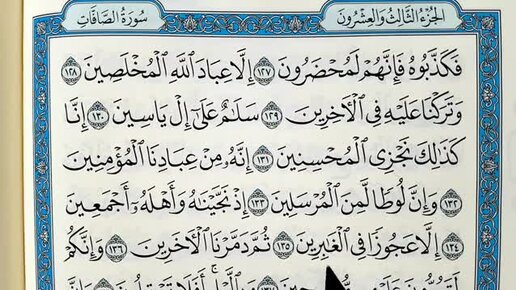 الجُزْءُ الثَّالِثُ وَالعِشْرُونَ
سُورَةُ الصَّافَّات
فَكَذَّبُوهُ فَإِنَّهُمْ لَمُحْضَرُونَ ١٢٧ إِلَّا عِبَادَ ٱللَّهِ ٱلْمُخْلَصِينَ ١٢٨
وَتَرَكْنَا عَلَيْهِ فِي ٱلْأٓخِرِينَ ١٢٩ سَلَٰمٌ عَلَىٰٓ إِلْ يَاسِينَ ١٣٠ إِنَّا
كَذَٰلِكَ نَجْزِي ٱلْمُحْسِنِينَ ١٣١ إِنَّهُۥ مِنْ عِبَادِنَا ٱلْمُؤْمِنِينَ
١٣٢ وَإِنَّ لُوطٗا لَّمِنَ ٱلْمُرْسَلِينَ ١٣٣ إِذْ نَجَّيْنَٰهُ وَأَهْلَهُۥٓ أَجْمَعِينَ
١٣٤ إِلَّا عَجُوزٗا فِي ٱلْغَٰبِرِينَ ١٣٥ ثُمَّ دَمَّرْنَا ٱلْأٓخَرِينَ ١٣٦ وَإِنَّكُمْ